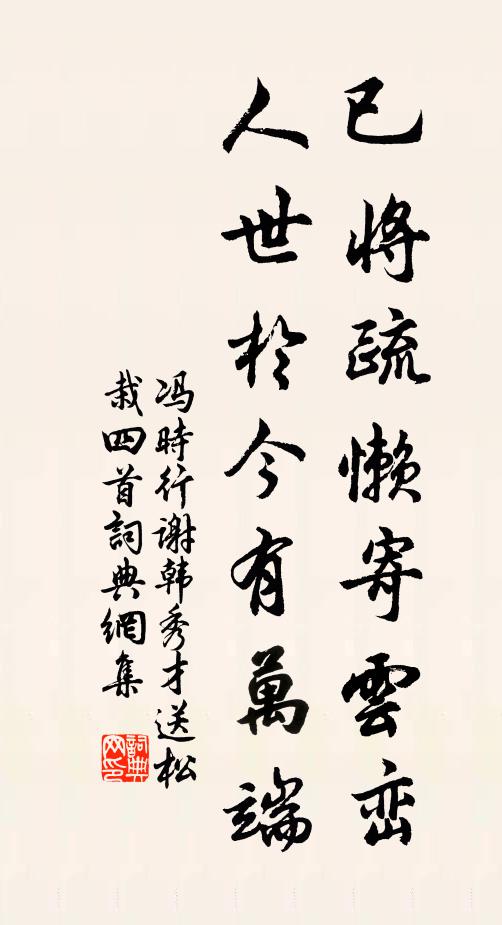 已將疏懶寄雲峦
人世於今有萬端
冯時行谢韩秀才送松
栽四首詞典網集
詞典
网印